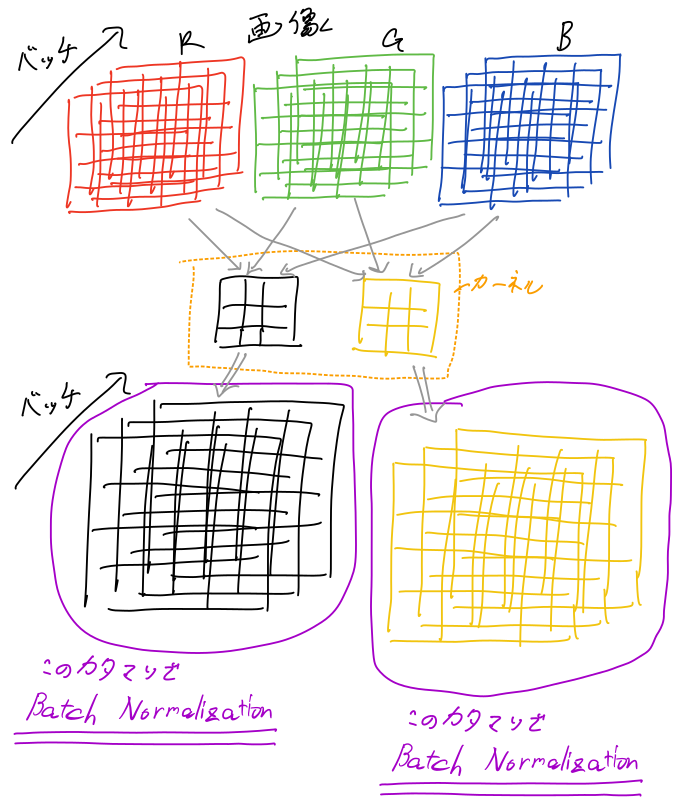 画像
バッチ
R
G
B
カーネル
バッチ
このカタマリで
Batch Normalization
このカタマリで
Batch Normalization